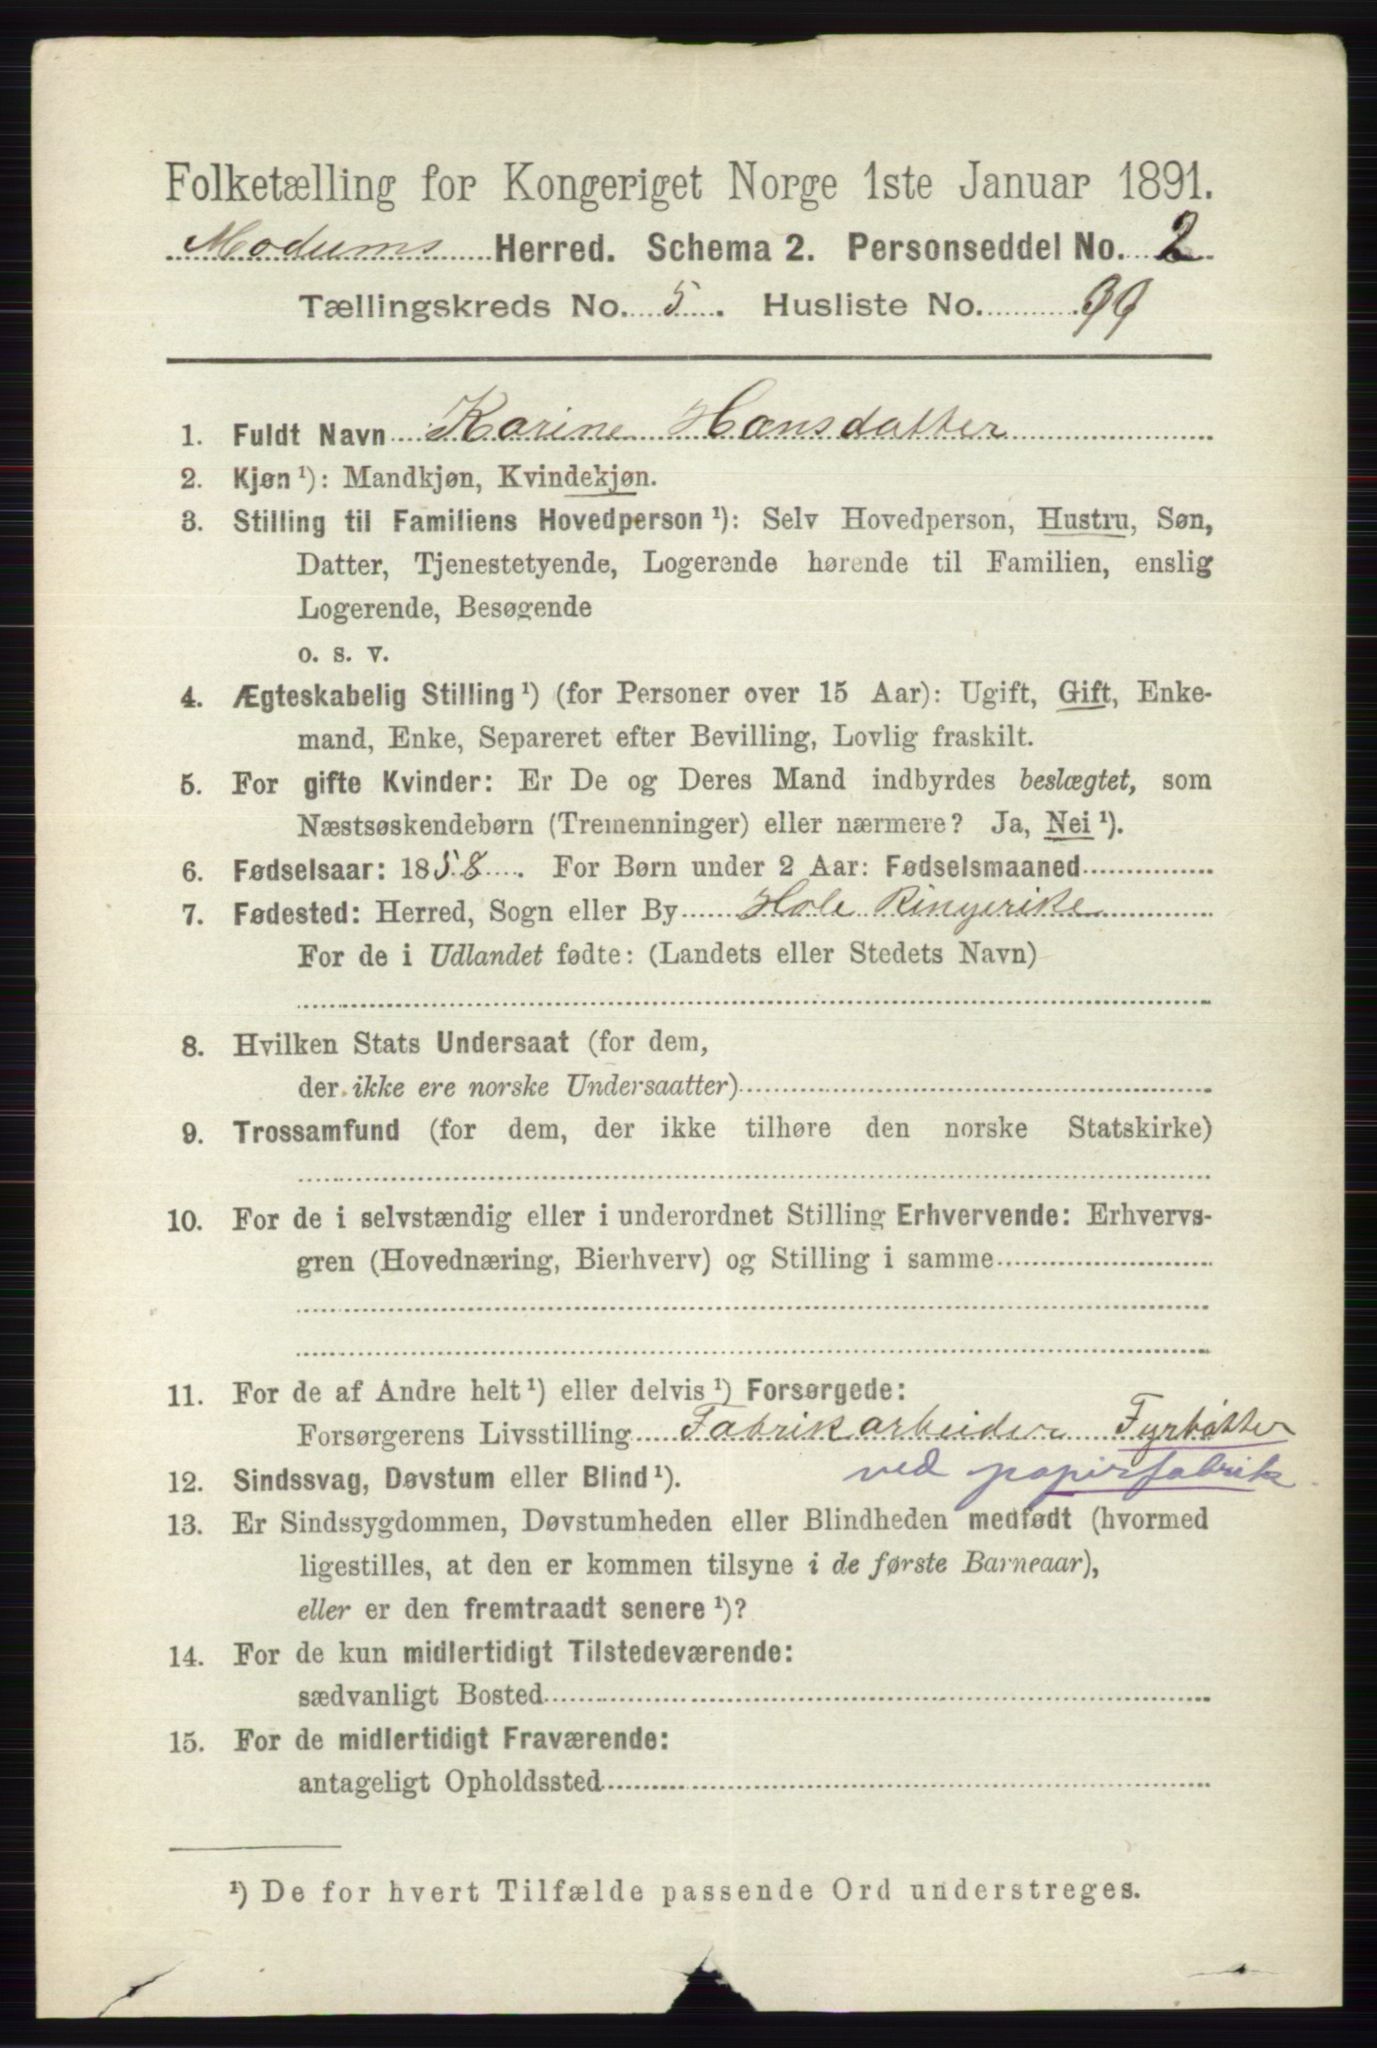 Folketælling for Kongeriget Norge 1ste Januar 1891.
Modums Herred. Schema 2. Personseddel No. 2
Tællingskreds No. 5. Husliste No. 99
1. Fuldt Navn Karine Hansdatter
2. Kjøn ¹): Mandkjøn, Kvindekjøn.
3. Stilling til Familiens Hovedperson ¹): Selv Hovedperson, Hustru, Søn,
Datter, Tjenestetyende, Logerende hørende til Familien, enslig
Logerende, Besøgende
o. s. v.
4. Ægteskabelig Stilling ¹) (for Personer over 15 Aar): Ugift, Gift, Enke-
mand, Enke, Separeret efter Bevilling, Lovlig fraskilt.
5. For gifte Kvinder: Er De og Deres Mand indbyrdes beslægtet, som
Næstsøskendebørn (Tremenninger) eller nærmere? Ja, Nei ¹).
6. Fødselsaar: 1858. For Børn under 2 Aar: Fødselsmaaned
7. Fødested: Herred, Sogn eller By Hole Ringerike
For de i Udlandet fødte: (Landets eller Stedets Navn)
8. Hvilken Stats Undersaat (for dem,
der ikke ere norske Undersaatter)
9. Trossamfund (for dem, der ikke tilhøre den norske Statskirke)
10. For de i selvstændig eller i underordnet Stilling Erhvervende: Erhvervs-
gren (Hovednæring, Bierhverv) og Stilling i samme
11. For de af Andre helt ¹) eller delvis ¹) Forsørgede:
Forsørgerens Livsstilling Fabrikarbeider Fyrbøtter
ved papirfabrik
12. Sindssvag, Døvstum eller Blind ¹).
13. Er Sindssygdommen, Døvstumheden eller Blindheden medfødt (hvormed
ligestilles, at den er kommen tilsyne i de første Barneaar),
eller er den fremtraadt senere ¹)?
14. For de kun midlertidigt Tilstedeværende:
sædvanligt Bosted
15. For de midlertidigt Fraværende:
antageligt Opholdssted
¹) De for hvert Tilfælde passende Ord understreges.